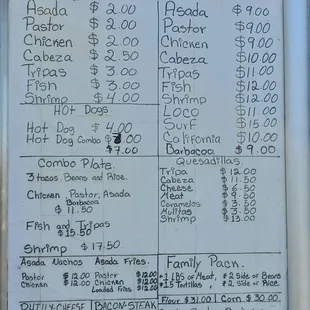 Asada $ 2.00
Pastor $ 2.00
Chicken $ 2.00
Cabeza $ 2.50
Tripas $ 3.00
Fish $ 3.00
Shrimp $ 4.00
Hot Dogs
Hot Dog $ 4.00
Hot Dog Combo
$ 7.00
Combo Plate.
3 tacos. Beans and Rice.
Chicken, Pastor, Asada
Barbacoa
$ 11.50
Fish and Tripas
$ 15.50
Shrimp $ 17.50
Asada Nachos
Pastor $ 12.00
Chicken $ 12.00
Asada Fries.
Pastor $ 12.00
Chicken $ 12.00
Loaded Fries $ 12.00
Asada $ 9.00
Pastor $ 9.00
Chicken $ 9.00
Cabeza $ 10.00
Tripas $ 11.00
Fish $ 12.00
Shrimp $ 12.00
Loco $ 11.00
Surf $ 15.00
California $ 10.00
Barbacoa $ 9.00
Quesadillas.
Tripa $ 12.00
Cabeza $ 11.50
Cheese $ 6.50
Meat $ 9.50
Caramelos $ 3.50
Mulitas $ 3.50
Shrimp $ 13.00
Family Pack.
1 LBS of Meat, 2 Side of Beans
15 Tortillas, 2 Side of Rice
Flour $31.00 Corn $ 30.00
BACON-STEAK